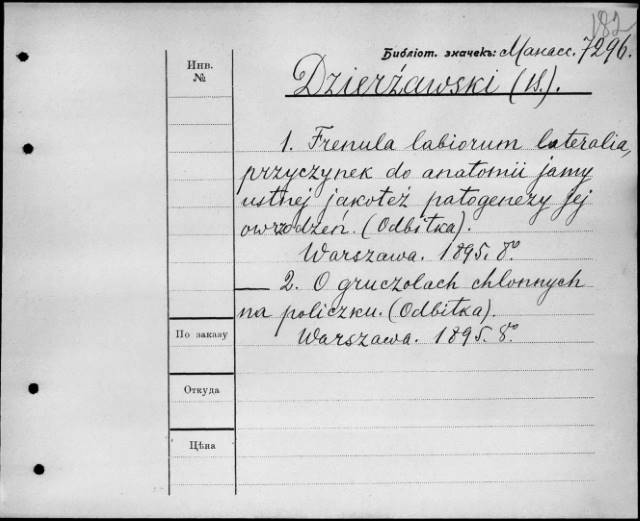 182
Библіот. значекъ: Манасс. 7296.
Инв.
№
Dzierżawski (B.).
1. Frenula labiorum lateralia,
przyczynek do anatomii jamy
ustnej jakoteż patogenezy jej
owrzodzeń. (Odbitka).
Warszawa. 1895. 8°
— 2. O gruczołach chłonnych
na policzku. (Odbitka).
Warszawa. 1895. 8°
По заказу
Откуда
Цѣна